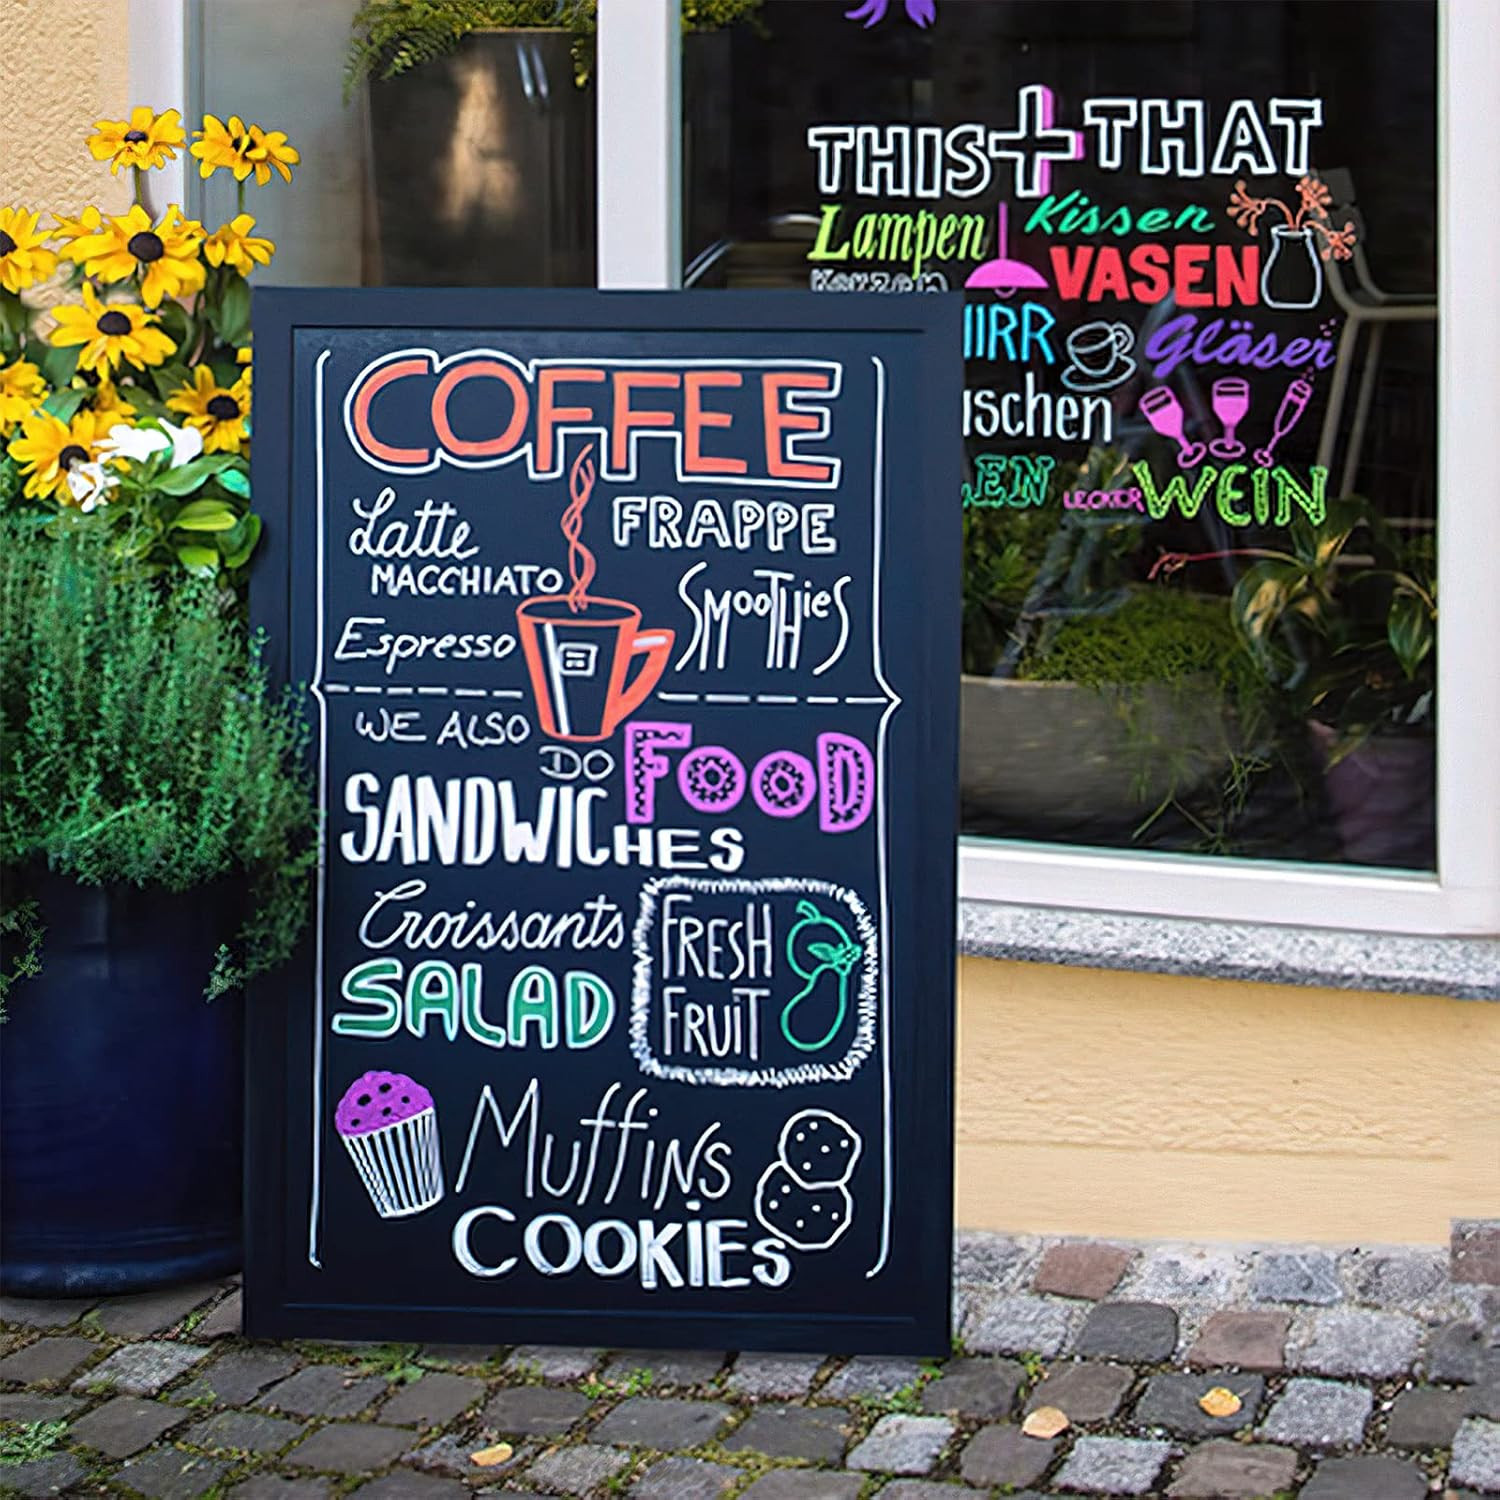 COFFEE
Latte
MACCHIATO
FRAPPE
Espresso
SMOOTHIES
WE ALSO
DO
FOOD
SANDWICHES
Croissants
FRESH
FRUIT
SALAD
MUFFINS
COOKIES
THIS+THAT
Lampen
Kissen
Kerzen
VASEN
Gläser
LECKER WEIN